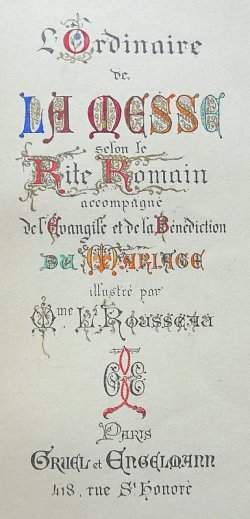 L'Ordinaire
de
LA MESSE
selon le
Rite Romain
accompagné
de l'Evangile et de la Bénédiction
DU MARIAGE
illustré par
Mme Le Rousseau
PARIS
GRUEL et ENGELMANN
418, rue St Honoré